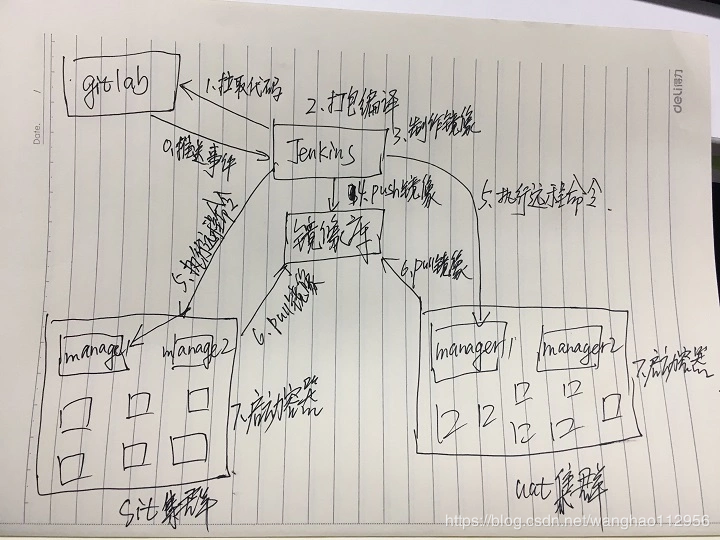 deli得力
Date.
/
gitlab
1.拉取代码
2.打包编译
3.制作镜像
0.推送事件
Jenkins
4.push镜像
5.执行远程命令
5.执行远程命令.
镜像库
6.pull镜像
6.pull镜像
manager1
manage2
7.启动容器
sit集群
manager1
manager2
7.启动容器
uat集群
https://blog.csdn.net/wanghao112956